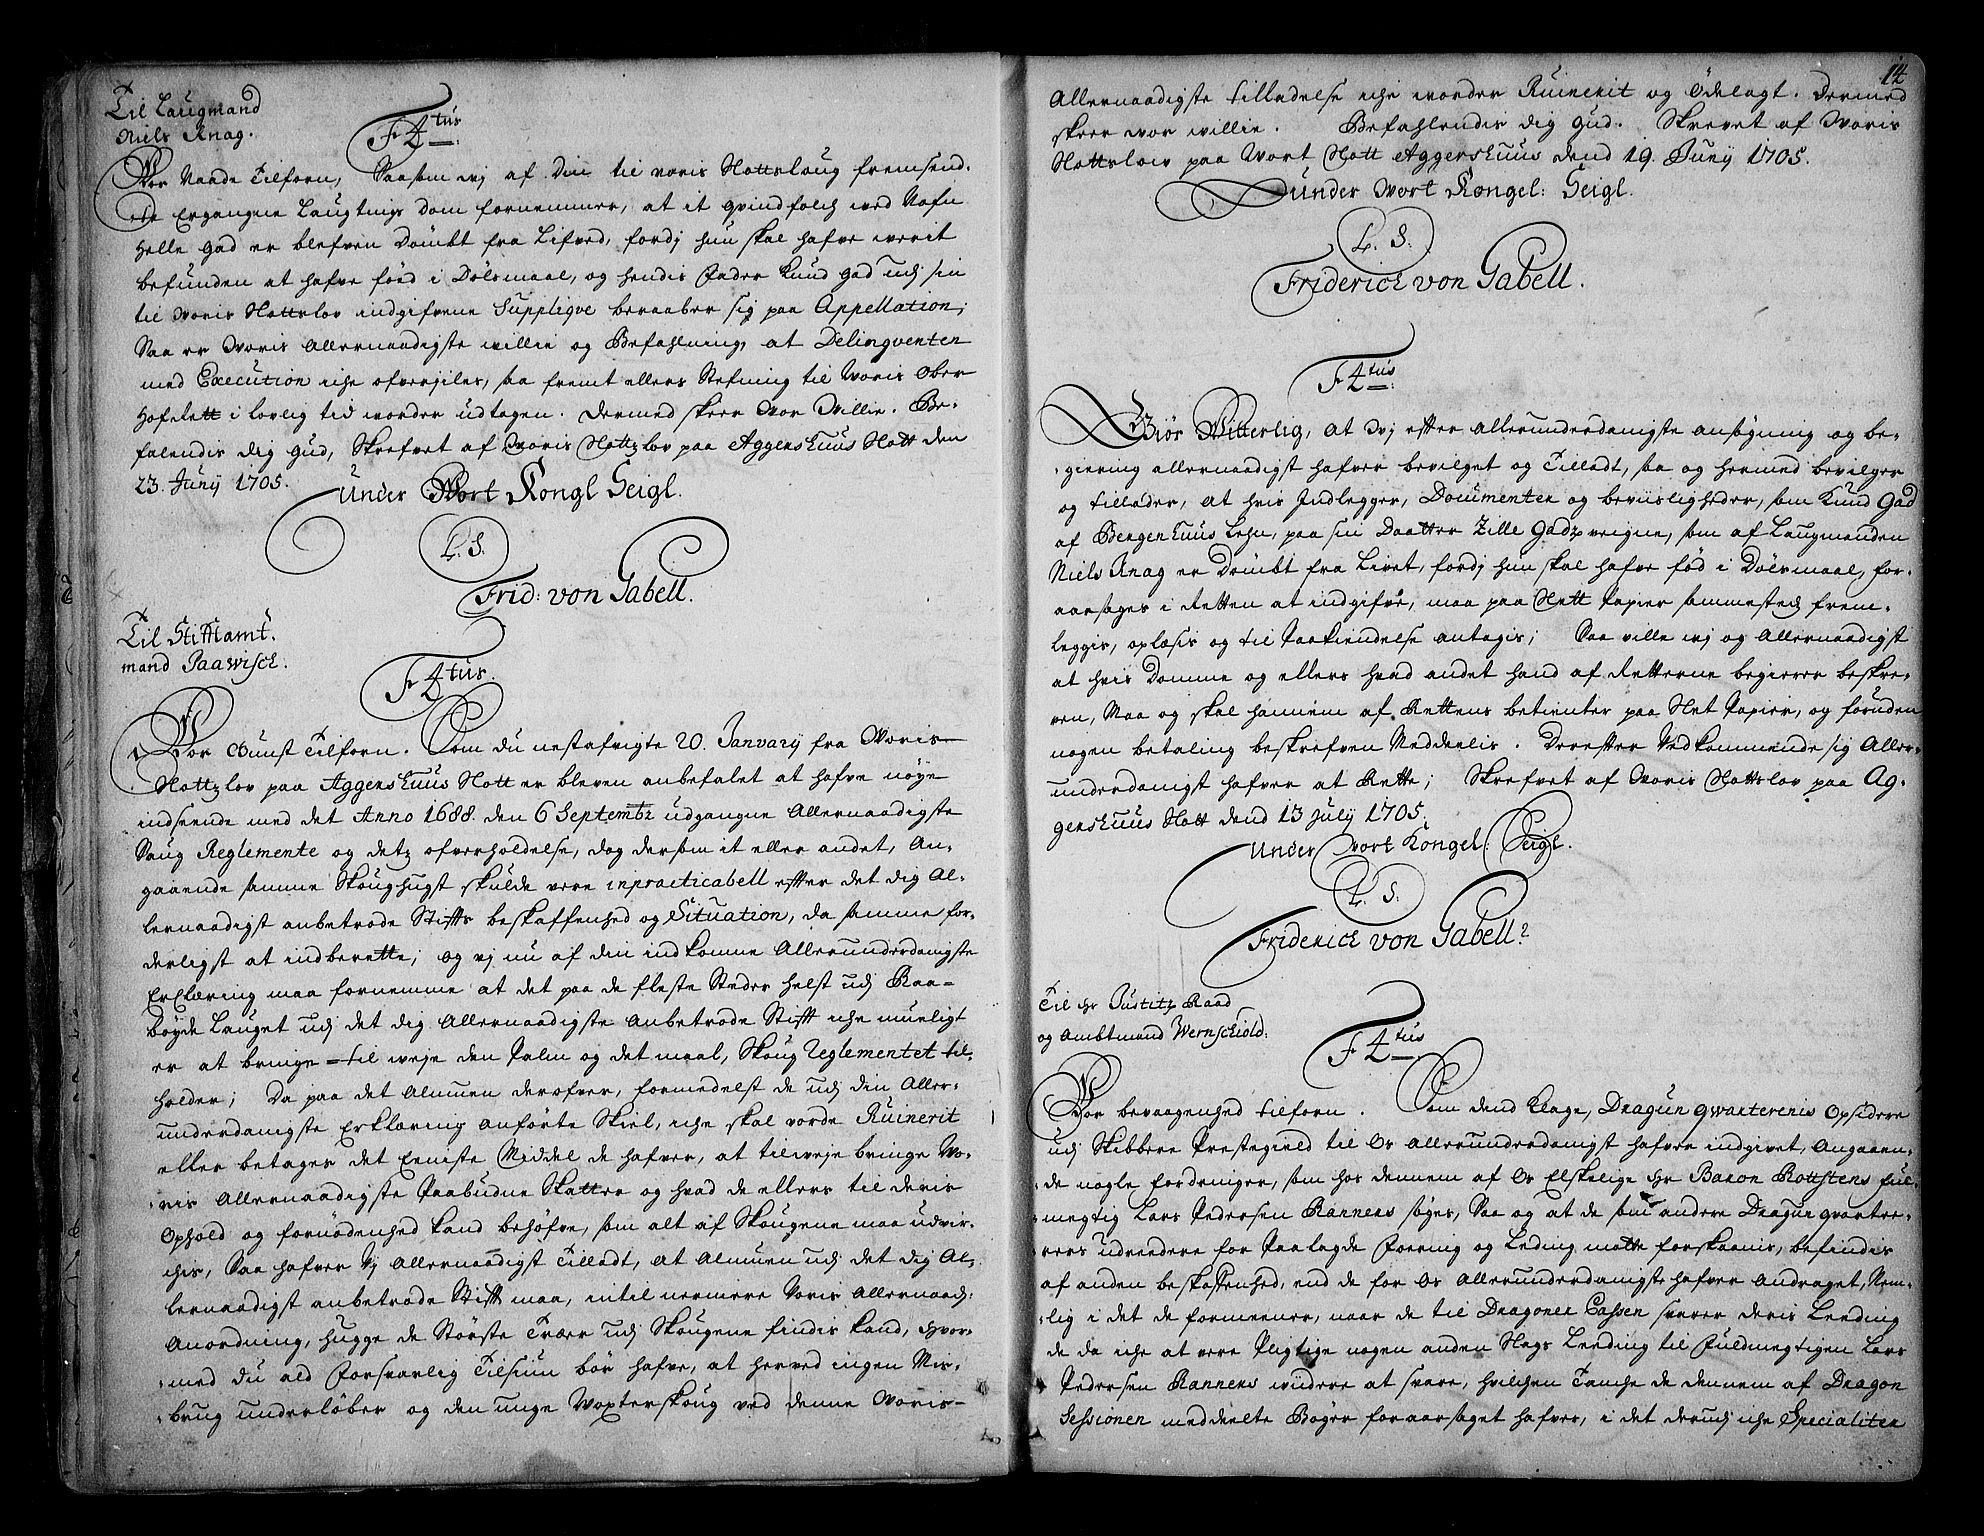 Til Laugmand
Niels Knag.
F 4tus
Vor Naade Tilforn, Saasom vj af Din til voris Slottsloug fremsend-
te Ergangne Laugtings dom fornemmer, at it qvindfolch ved Nafn
Helle Gad er blefven Dömbt fra Lifved, fordj hun skal hafve werit
befunden at hafve föed i Dölsmaal, og hendis Fader Knud Gad udj sin
til Voris Slottslov indgifvene Supplique beraaber sig paa Appellation;
Saa er Voris Allernaadigste willie og Befahlning, at Delinqventen
med Execution iche ofveriiles, saa fremt ellers Stefning til Voris Ober
Hofrett i lovlig tid worder udtagen. Dermed skeer Vor Villie. Be-
falendis dig Gud, Skrefvet af Voris Slottzlov paa Aggershuus Slott den
23. Junij 1705.
Under Wort Kongl Seigl.
L. S.
Frid: von Gabell.
Til Stiftamt.
mand Paawisch.
F 4tus.
Vor Gunst Tilforn. Som du nestafvigte 20. Januarij fra Voris
Slottzlov paa Aggershuus Slott er bleven anbefalet at hafve nöye
indseende med det Anno 1688. den 6 Septembr udgangne Allernaadigste
Saug Reglemente og detz ofverholdelse, dog dersom it eller andet, An-
gaaende samme Skoughugst skulde vere inpracticabell effter det dig Al-
lernaadigst anbetrode Stiffts beskaffenhed og Situation, da samme for-
derligst at indberette; og vj nu af din indkomne Allerunderdanigste
Erclæring maa fornemme at det paa de fleste Steder helst udj Raa-
böyde Lauget udj det dig Allernaadigste Anbetrode Stifft iche mueligt
er at bringe til weje den Palm og det maal, Skoug Reglementet til-
holder; Da paa det Almuen derofver, formedelst de udj din Aller-
underdanigste Erklæring anförte Skiel, iche skal vorde Ruinerit
eller betages det Eeniste Middel de hafver, at tilveje bringe Vo-
ris Allernaadigste Paabudne Skatter og hvad de ellers til deris
Ophold og fornödenhed kand behöfve, som alt af Skougene maa udvir-
chis, Saa hafver Vj Allernaadigst Tilladt, at Almuen udj det dig Al-
lernaadigst anbetrode Stifft maa, intil nermere Voris Allernaad:
Anordning, hugge de Störste Træer udj Skougene findis kand, hvor-
med du ald Forsvarlig Tilsiun bör hafve, at herved ingen Mis-
brug underlöber og den unge Woxterskoug ved denne Voris
14
Allernaadigste tilladelse iche worder Ruinerit og Ödelagt. Dermed
skeer vor willie. Befahlendis dig Gud. Skrevet af Voris
Slottslov paa Wort Slott Aggershuus dend 19. Junij 1705.
Under Wort Kongel: Seigl.
L. S.
Friderich von Gabell.
F 4tus
Giör Witterlig, at Vj effter allerunderdanigste ansögning og be-
giering allernaadigst hafver bevilget og Tilladt, saa og hermed bevilger
og tillader, at hvis Indlegger, Documenter og beviisligheder, som Knud Gad
af Bergenhuus Lehn, paa sin Daatter Zille Gadz veigne, som af Laugmanden
Niels Knag er Dömbt fra Livet, fordj hun skal hafve föd i Dölsmaal, for-
aarsages i Retten at indgifve, maa paa Slett Papier sammesteds frem-
leggis, oplæsis og til Paakiendelse antagis; Saa ville vj og Allernaadigst
at hvis Domme og ellers hvad andet hand af Retterne begierer beskre-
ven, Maa og skal hannem af Rettens betienter paa Slet Papier, og foruden
nogen betaling beskrefven Meddeelis. Derefter Vedkommende sig Aller-
underdanigst hafver at Rette; Skrefvet af Voris Slottslov paa Ag-
gershuus Slott dend 13 July 1705.
Under Vort Kongel: Seigl.
L. S.
Friderich von Gabell.
Til Hr Justitz Raad
og Ambtmand Wernschiold:
F 4tus
Vor bevaagenhed tilforn. Som dend Klage, Dragun qvarterenis Opsidere
udj Skibbere Prestegield til Os Allerunderdanigst hafver indgivet, Angaaen-
de nogle fordringer, som hos dennem af Os Elskelige Hr Baron Rottstens ful-
megtig Lars Pedersen Ranners söges, Saa og at de som andere Dragun qvarte-
rers udreedere for Paalagde Foering og Leding motte forskaanis, befindis
af anden beskaffenhed, end de for Os Allerunderdanigste hafver Andraget, Nem-
lig i det de formeener, naar de til Dragoner Cassen svarer deris Leeding
de da iche at vere Pligtige nogen anden Slags Leeding til Fuldmegtigen Lars
Pedersen Ranners widere at svare, hvilchen Tanche de dennem af Dragon
Sessionen meddeelte Böger foraarsaget hafver, i det derudj iche Specialiter